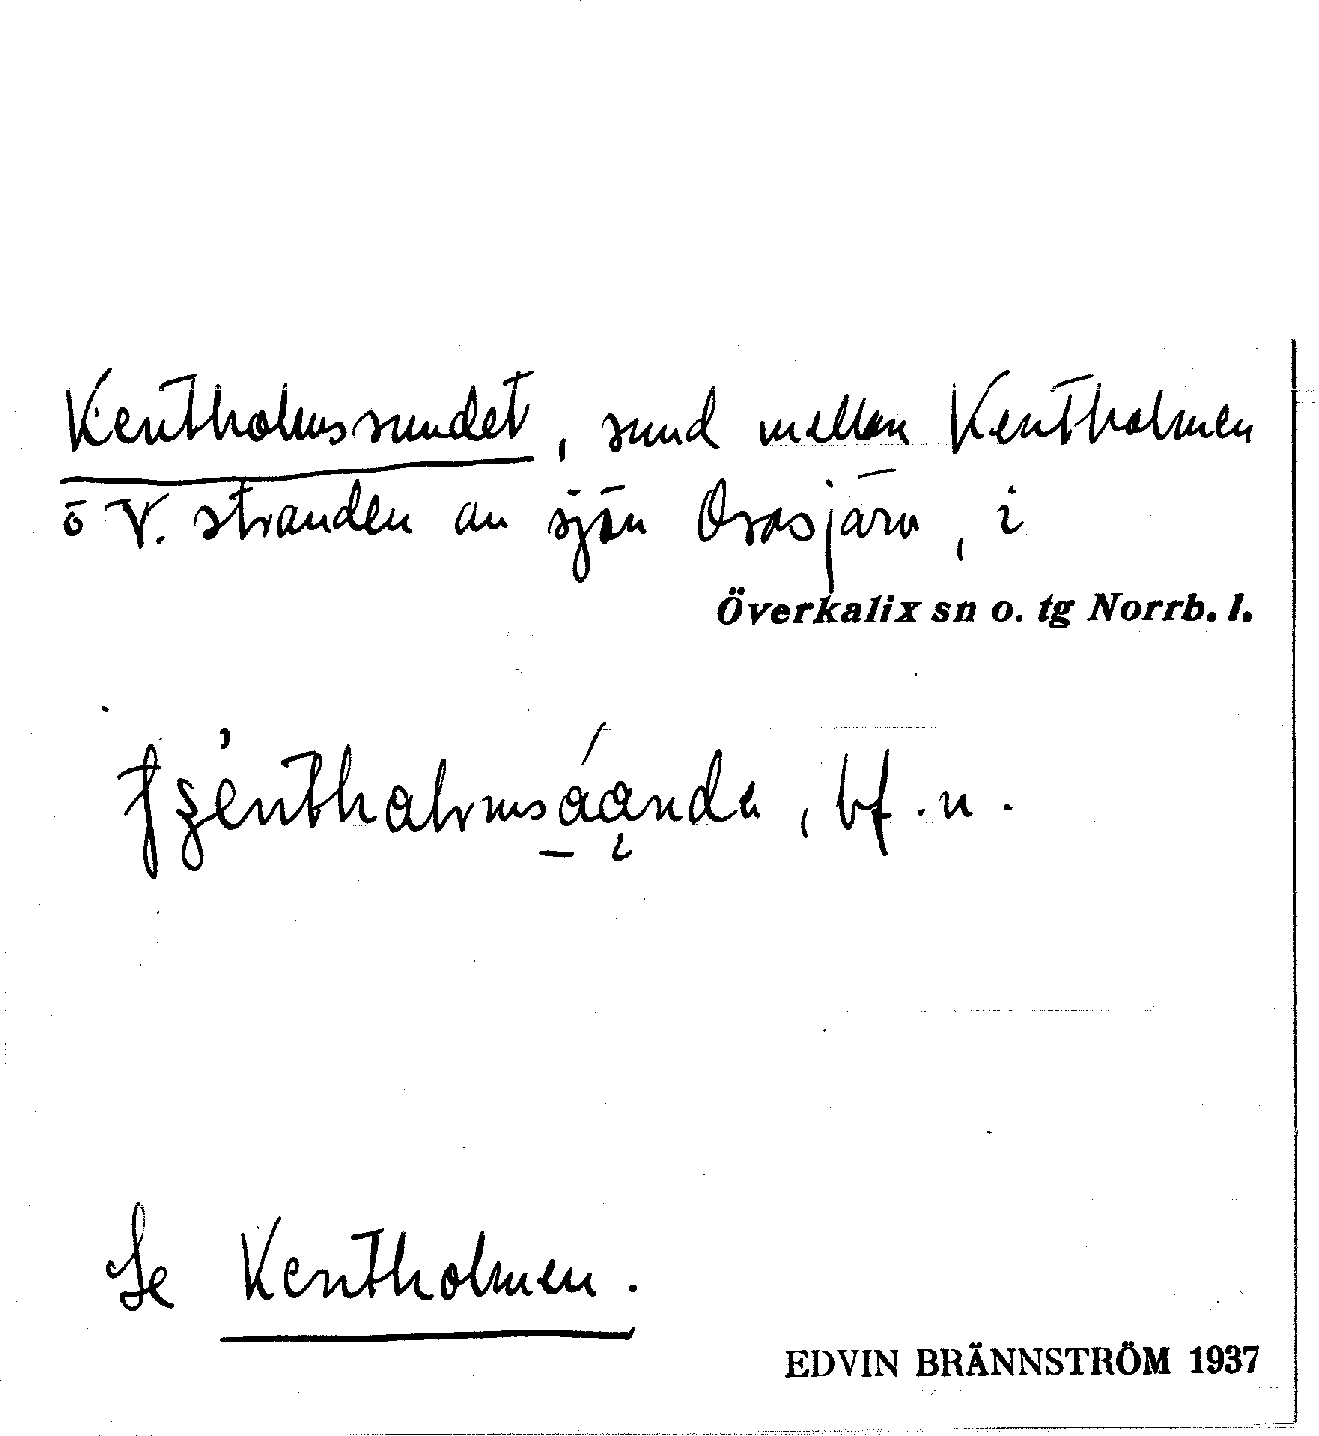 Kentholmssundet, sund mellan Kentholmen
o V. stranden av sjön Orasjärv, i
Överkalix sn o. tg Norrb. l.
, bf. n.
Se Kentholmen.
EDVIN BRÄNNSTRÖM 1937